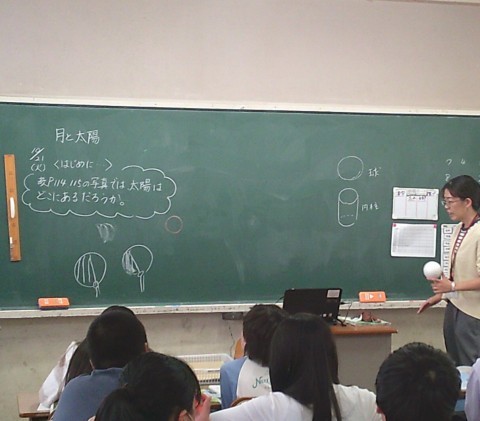 月と太陽
10/21
(火) <はじめに…>
教P114.115の写真では太陽は
どこにあるだろうか。
球
円柱